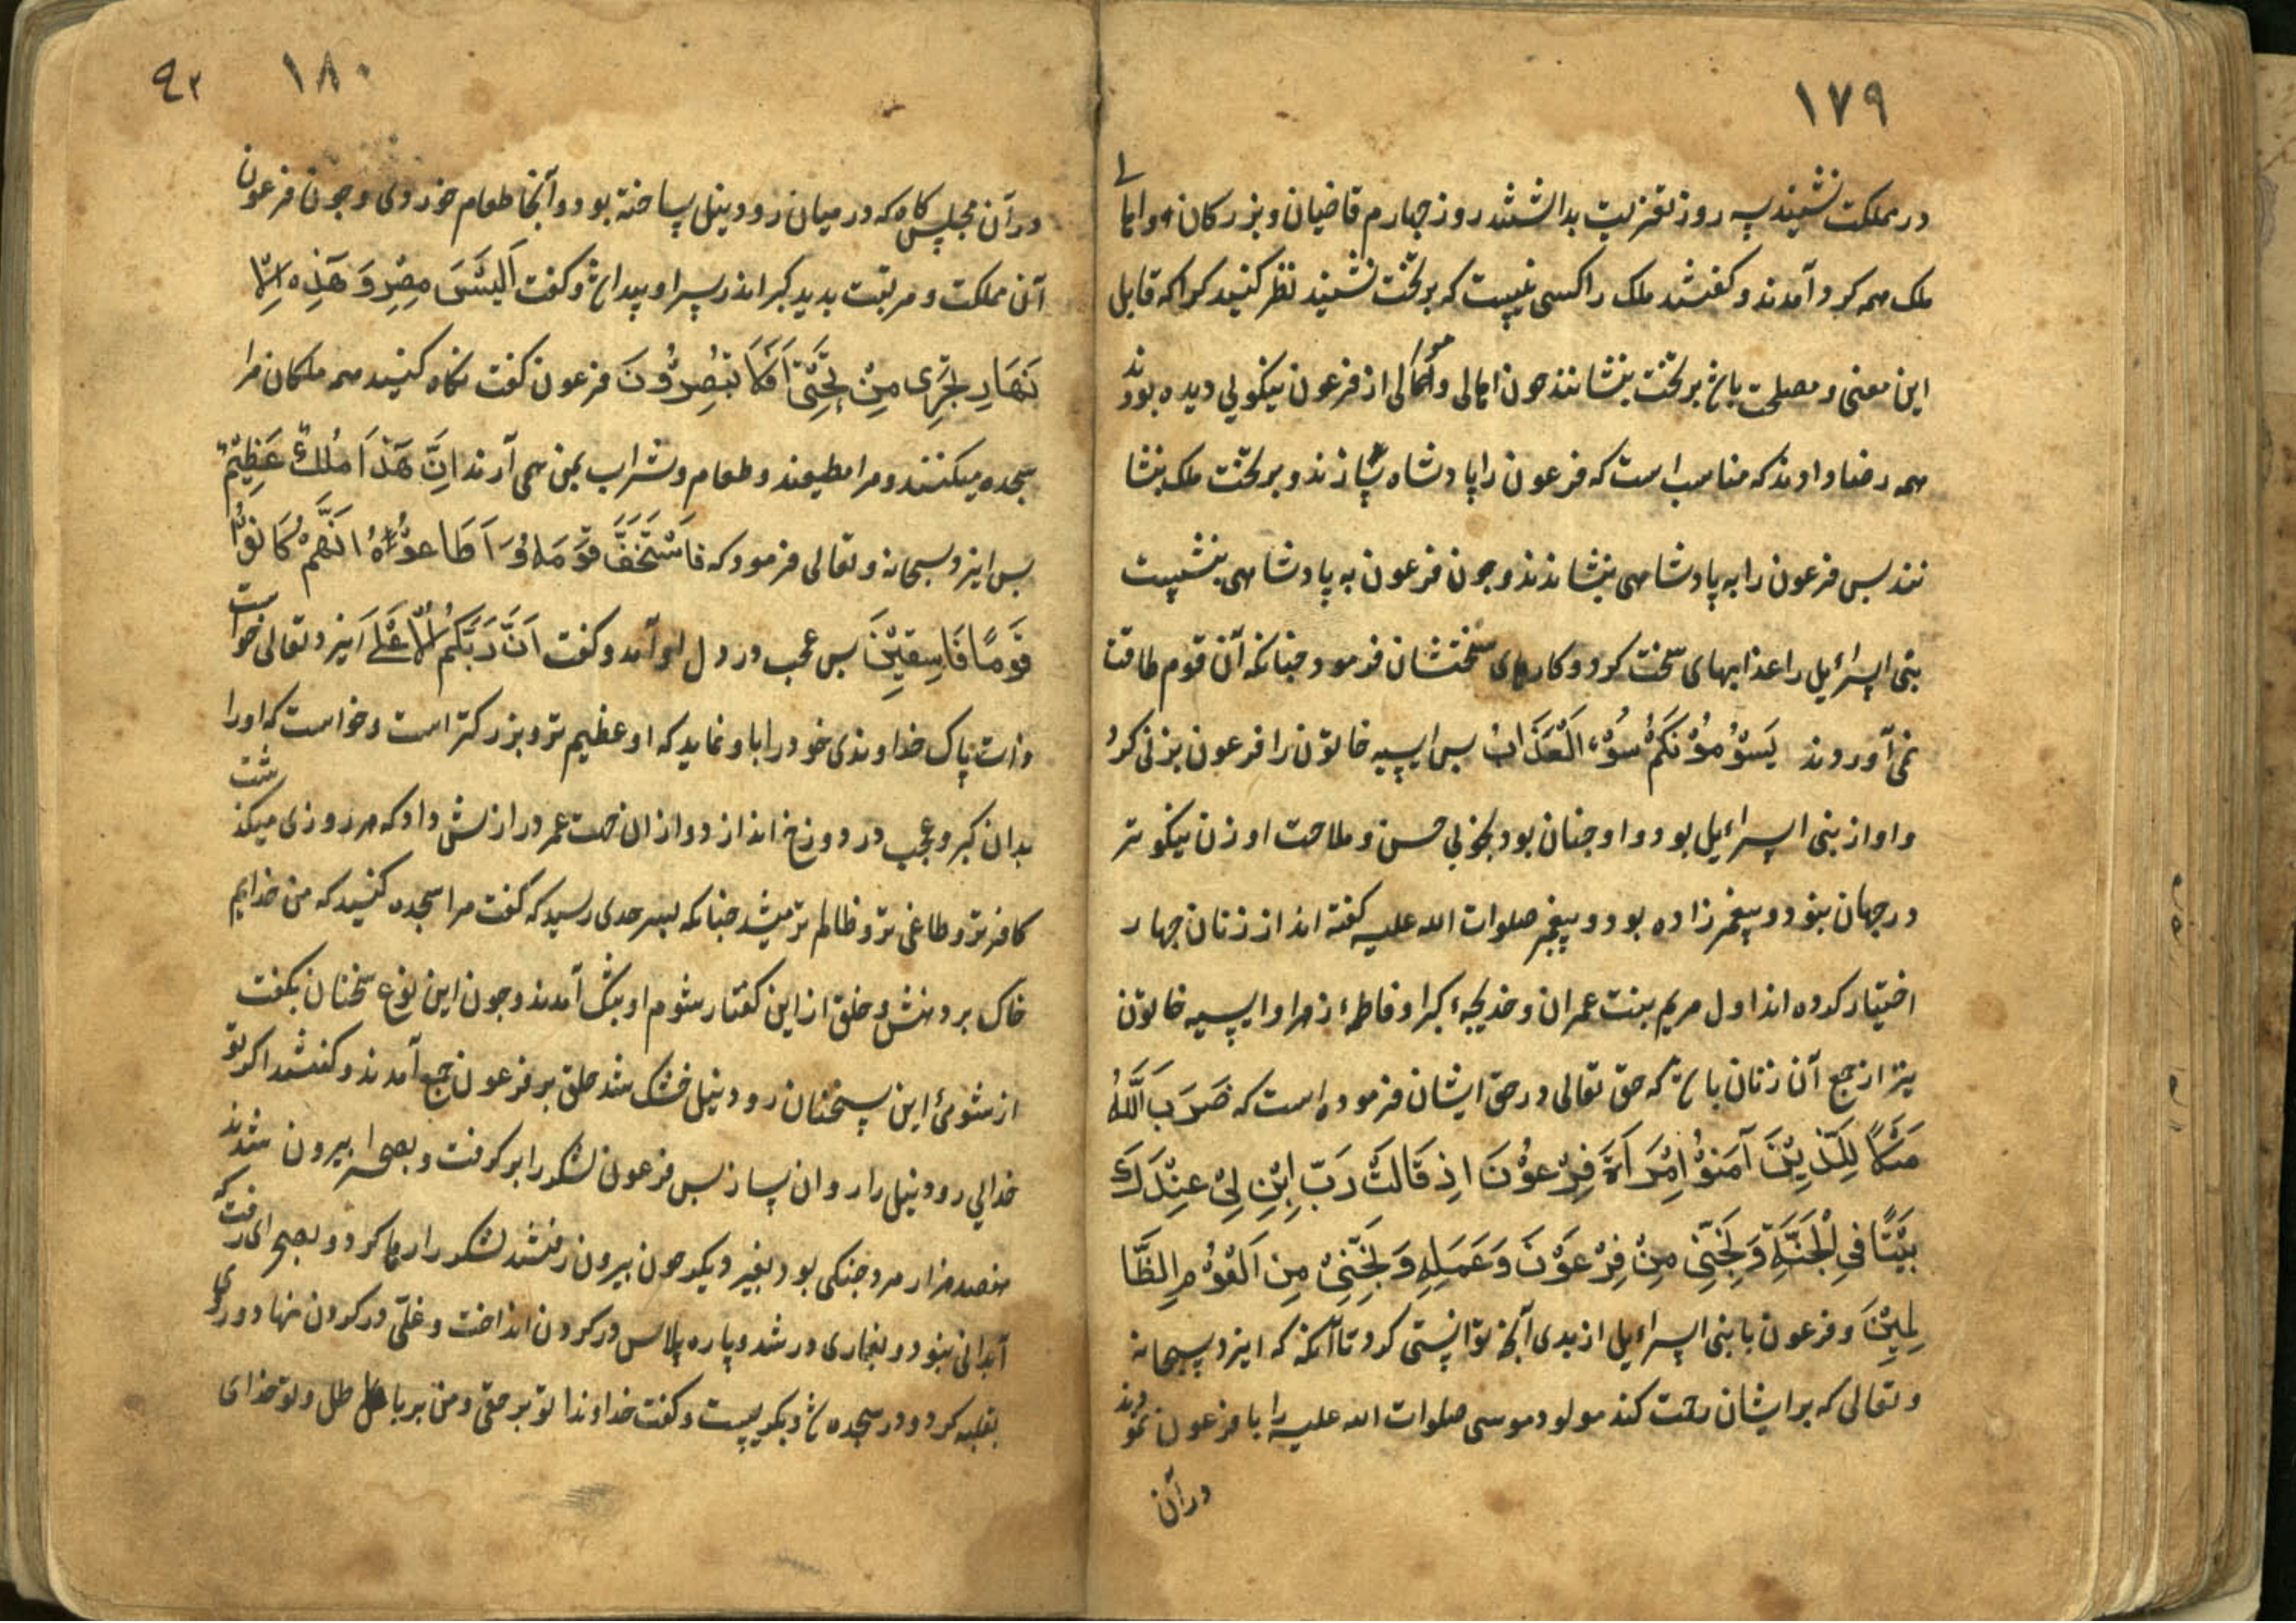 ١٧٩
در مملکت نشیند سه روز تعزیت بداشتند روز چهارم قاضیان و بزرکان و اهالی
ملک همه کرد آمدند و کفتند ملک را کسی نیست که بر تخت نشیند نظر کنید کرا که قابل
این معنی و مصلحت باشد بر تخت بنشانند چون اهالی و موالی از فرعون نیکویی دیده بودند
همه رضا دادند که مناسب است که فرعون را پادشاه سازند و بر تخت ملک بنشا
نند بس فرعون را به پادشاهی بنشاندند و چون فرعون به پادشاهی بنشست
بنی اسرائیل را عذابهای سخت کرد و کارهای سختشان فرمود جنانکه آن قوم طاقت
نمی آوردند یَسُوْمُوْنَکُمْ سُوْءَ الْعَذَابْ بس ایسیه خاتون را فرعون بزنی کرد
و او از بنی اسراءیل بود و او جنان بود بخوبی حسن و ملاحت او زن نیکوتر
در جهان نبود و پیغمبرزاده بود و پیغمبر صلوات الله علیه کفته اند از زنان جهار
اختیار کرده اند اول مریم بنت عمران و خدیجهٔ کبرا و فاطمهٔ زهرا و ایسیه خاتون
نیز از جمع آن زنان باشد که حق تعالی در حق ایشان فرموده است که ضَرَبَ اَللَّهُ
مَثَلًا لِلَّذِیْنَ آمَنوُ اِمْرَاَةَ فِرْعَوْنَ اِذ قَالَتْ رَبِّ ابْنِ لِیْ عِنْدَکَ
بَیْتًا فِی الْجَنَّةِ وَ نَجِّنِی مِنْ فِرْعَوْنَ وَعَمَلِهِ وَ نَجِّنِیْ مِنَ الْقَوْمِ الظَّا
لِمِیْنَ و فرعون با بنی اسراءیل از بدی آنچه توانستی کرد تا آنکه که ایزد سبحانه
و تعالی که بر ایشان رحمت کند مولود موسی صلوات الله علیه را با فرعون نمودند
در آن
١٨٠
٩٢
در آن مجلس کاه که در میان رود نیل ساخته بود و آنجا طعام خوردی و جون فرعون
آن مملکت و مرتبت بدید کبر اندر سر او پیدا شد و کفت اَلَیْسَ مِصْرَ وَ هَذِهِ الْا
نَهَارِ تَجْرِی مِنْ تَحْتِیَ اَفَلَا تُبْصِرُوْنَ فرعون کفت نکاه کنید همه ملکان مرا
سجده میکنند و مرا مطیعند و طعام و شراب بمن همی آرند اِنَّ هَذَا مُلْکٌ عَظِیْمٌ
بس ایزد سبحانه و تعالی فرمود که فَاسْتَخَفَّ قَوْمَهُ فَاَطَاعُوْهُ اِنَّهُمْ کَانُوْا
قَوْمًا فَاسِقِیْنَ بس عجب در دل او آمد و کفت اَنَا رَبُّکُمُ الْاَعْلَے ایزد تعالی خواست
ذات پاک خداوندی خود را با او نماید که او عظیم تر و بزرکتر است و خواست که او را
بدان کبر و عجب در دوزخ اندازد و از ان جهت عمر درازش داد که هر روزی میکذشت
کافرتر و طاغی تر و ظالم تر میشد جنانکه بسرحدی رسید که کفت مرا سجده کنید که من خدایم
خاک بر دهنش و خلق از این کفتار شوم او بتنک آمدند و جون این نوع سخنان بکفت
از شومیٔ این سخنان رود نیل خشک شد خلق بر فرعون جمع آمدند و کفتند اکر تو
خدایی رود نیل را روان ساز بس فرعون لشکر را بر کرفت و بصحرا بیرون شدند
هفصد هزار مرد جنکی بود بغیر دیکر جون بیرون رفتند لشکر را رها کرد و بصحرای رفت که
آبدانی نبود و بغاری در شد و پاره پلاس در کردن انداخت و غلّی در کردن نهاد و روی
بقبله کرد و در سجده شد و بکریست و کفت خداوندا تو بر حقی و من بر باطل و تو خدای